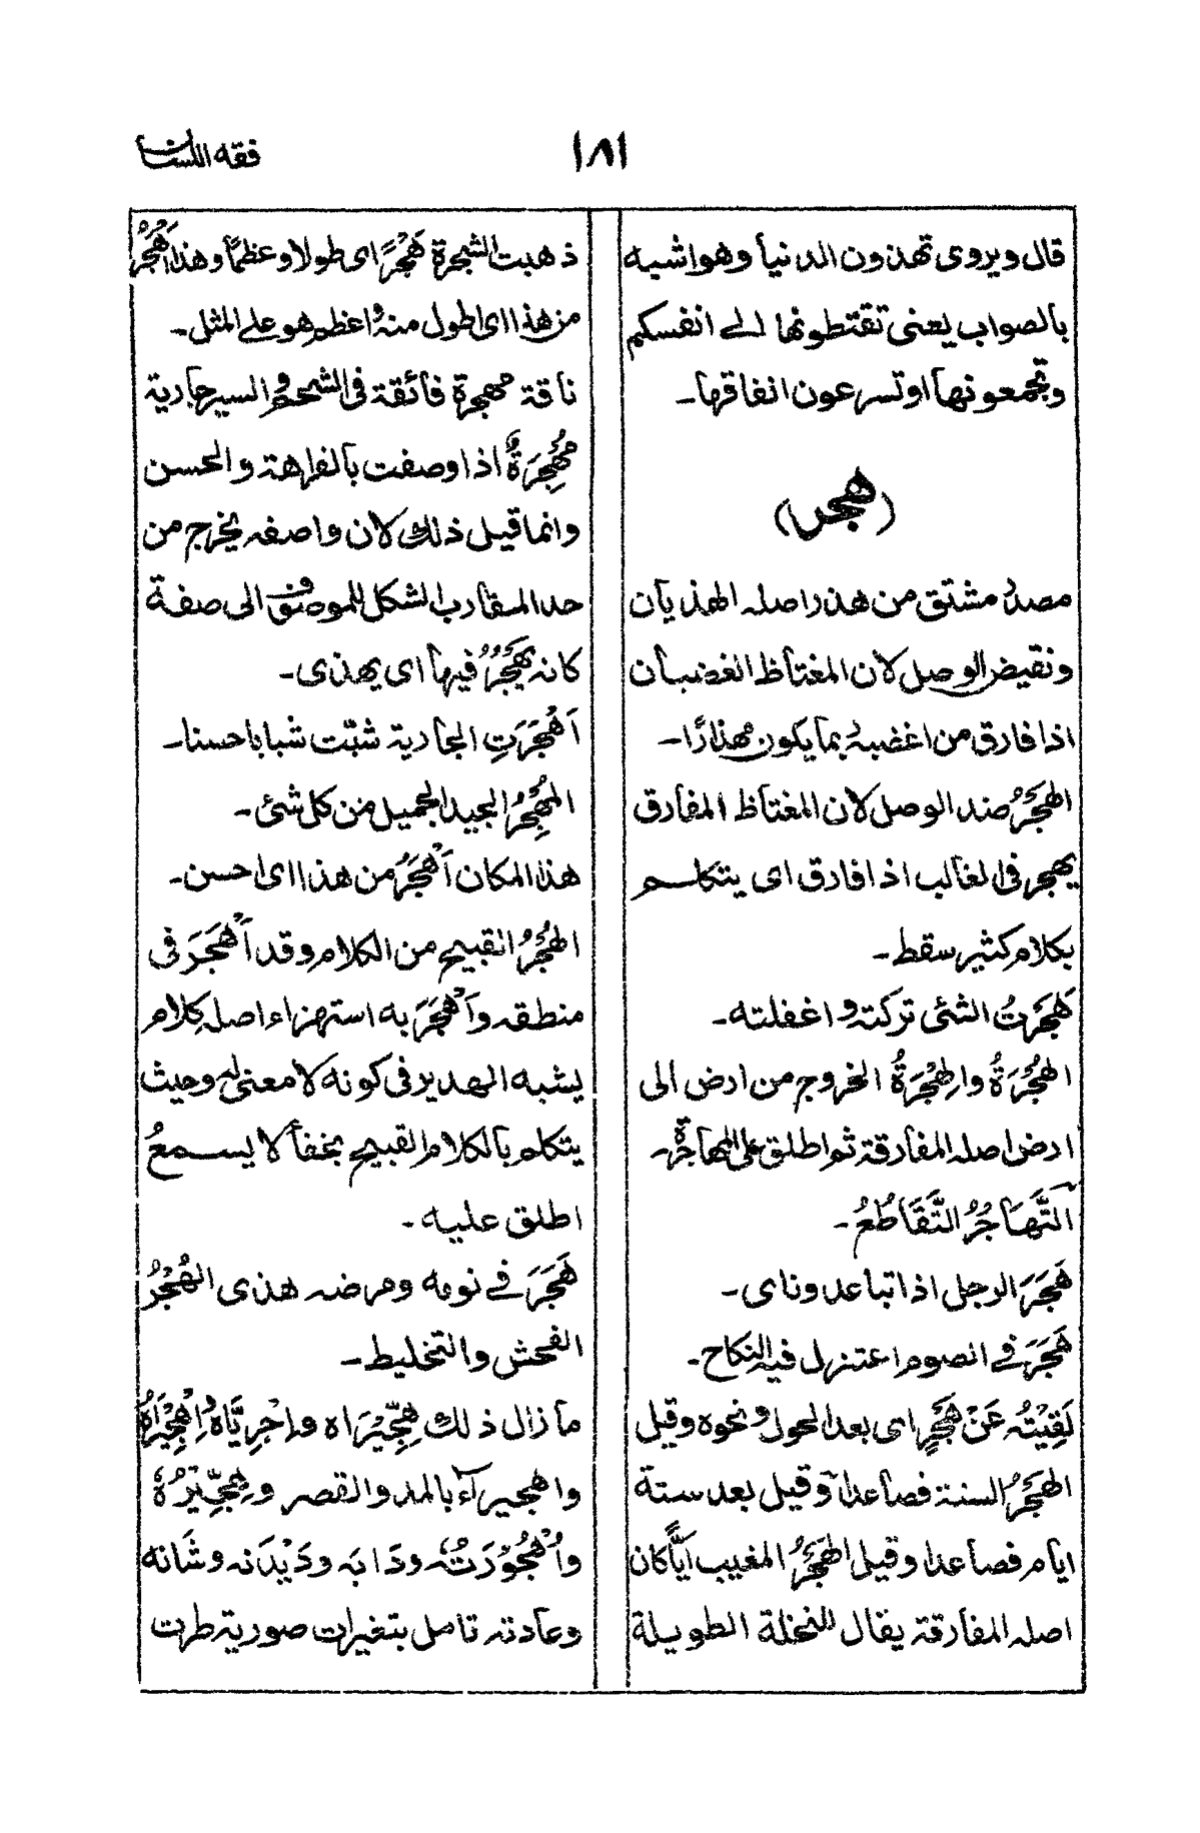 فقه اللسان
١٨١
قال ويروى تهذون الدنيا وهو اشبه
بالصواب يعنى تقتطونها الى انفسكم
وتجمعونها او تسرعون انفاقها۔
(هجر)
مصدر مشتق من هذر اصله الهذيان
ونقيض الوصل لان المغتاظ الغضبان
اذا فارق من اغضبه بما يكون مهذارًا۔
الهَجْرُ ضد الوصل لان المغتاظ المفارق
يهجر فى الغالب اذا فارق اى يتكلم
بكلام كثير سقط۔
هَجَرْتُ الشئى تركته و اغفلته۔
الهُجْرَةُ والهِجْرَةُ الخروج من ارض الى
ارض اصله المفارقة ثم اطلق على المهاجرة۔
اَلتَّهَاجُرُ التَّقَاطُعُ۔
هَجَرَ الرجل اذا تباعد وناى۔
هَجَرَ فى الصوم اعتزل فيه النكاح۔
لَقِيْتُه عَنْ هَجْرٍ اى بعد الحول ونحوه وقيل
الهَجْرُ السنة فصاعداً وقيل بعد ستة
ايام فصاعدا وقيل الهَجْرُ المغيب اَيًّا كان
اصله المفارقة يقال للنخلة الطويلة
ذهبت الشجرة هَجْرًا اى طولا وعظمًا وهذا اَهْجَرُ
من هذا اى اطول منه و اعظم هو على المثل۔
ناقة مهجرة فائقة فى الشحم و السير جارية
مُهْجِرَةٌ اذا وصفت بالفراهة والحسن
وانما قيل ذلك لان واصفه يخرج من
حد المقارب الشكل للموصوف الى صفة
كانه يَهْجُرُ فيها اى يهذى۔
اَهْجَرَتِ الجارية شبّت شبابا حسنا۔
المُهْجِرُ الجيد الجميل من كل شئى۔
هذا المكان اَهْجَرُ من هذا اى احسن۔
الهُجْرُ القبيح من الكلام وقد اَهْجَرَ فى
منطقه واَهْجَرَ به استهزاء اصله كلام
يشبه الهدير فى كونه لا معنى له وحيث
يتكلم بالكلام القبيح بخفأ لا يسمعُ
اطلق عليه۔
هَجَرَ فى نومه ومرضه هذى الهُجْرُ
الفحش والتخليط۔
ما زال ذلك هِجِّيْرَاه واِجْرِيَّاهُ اِهْجِيْرَاهُ
واهجيراءَ بالمد والقصر وهِجِّيْرُهٗ
واُهْجُوْرَتُهٗ ودَابَه ودَيْدَنه وشَانه
وعادته تامل بتغيرات صورية طرت